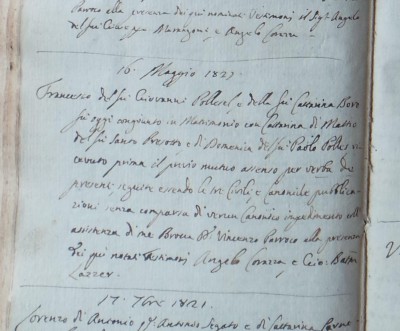 Parroco alla presenza dei qui nominati Testimoni il Sigr Angelo
del fu e Angelo Corazza
16. Maggio 1821.
Francesco del fu Giovanni Pollesel, e della fu Cattarina
fu oggi congiunto in Matrimonio con Cattarina di Matteo
del fu Santo e di Domenica del fu Paolo
cevuto prima il previo mutuo assenso per verba de
presenti seguite essendo le tre Civili, e Canoniche pubblica-
zioni senza comparsa di verun Canonico impedimento coll'
assistenza di me Dn. Vincenzo Parroco alla presenza
dei qui notati Testimoni Angelo Corazza e Gio: Batta
Lazzer.
17. 7bre 1821.
Lorenzo di Antonio qm Antonio Segato e di Cattarina